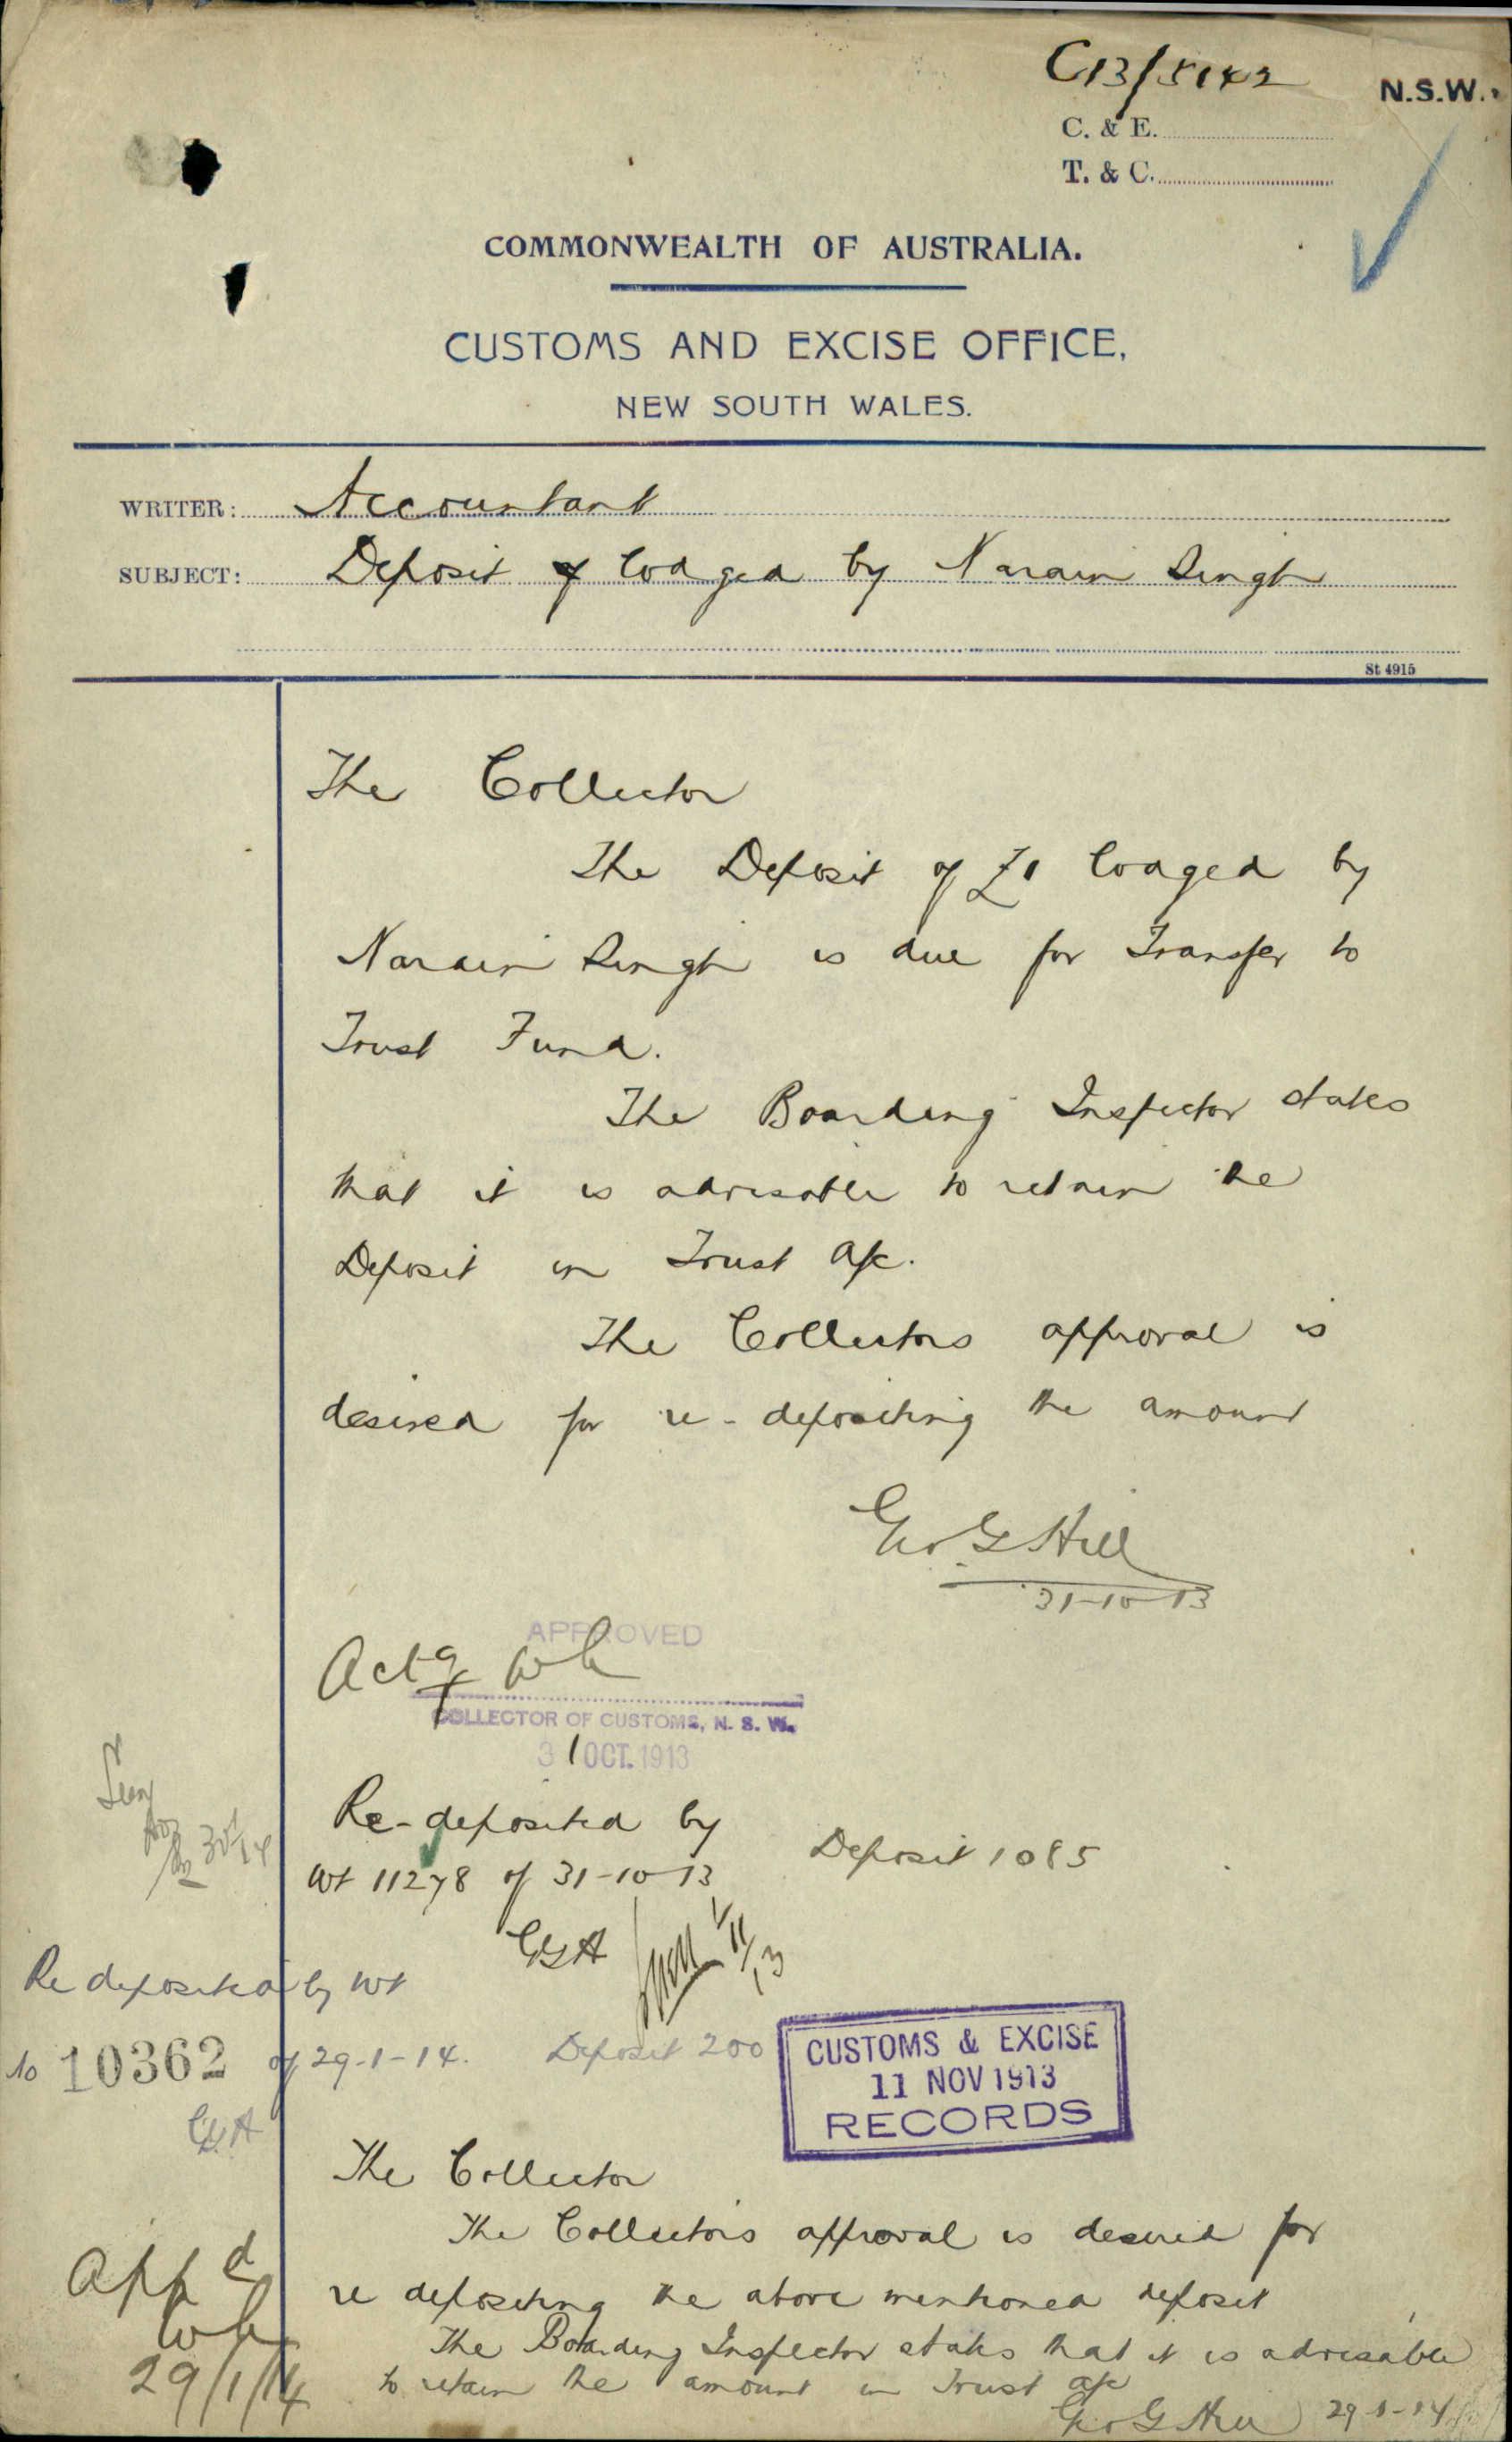 C13/5142
N.S.W.
C. & E.
T. & C.
COMMONWEALTH OF AUSTRALIA.
CUSTOMS AND EXCISE OFFICE,
NEW SOUTH WALES.
WRITER: Accountant
SUBJECT: Deposit of lodged by Narain Singh
St 4915
The Collector
The Deposit of £1 lodged by
Narain Singh is due for Transfer to
Trust Fund.
The Boarding Inspector states
that it is advisable to retain the
Deposit in Trust a/c.
The Collectors approval is
desired for re-depositing the amount
Geo G Hill
31-10-13
APPROVED
Actg
COLLECTOR OF CUSTOMS, N. S. W.
31 OCT. 1913
Re-deposited by
Wt 11278 of 31-10-13
Deposit 1085
GGH
1/11/13
Re deposited by Wt
No 10362 of 29-1-14. Deposit 200
GGH
CUSTOMS & EXCISE
11 NOV 1913
RECORDS
The Collector
The Collector's approval is desired for
re depositing the above mentioned deposit
The Boarding Inspector states that it is advisable
to retain the amount in Trust a/c
Geo G Hill 29-1-14
Appd
29/1/14